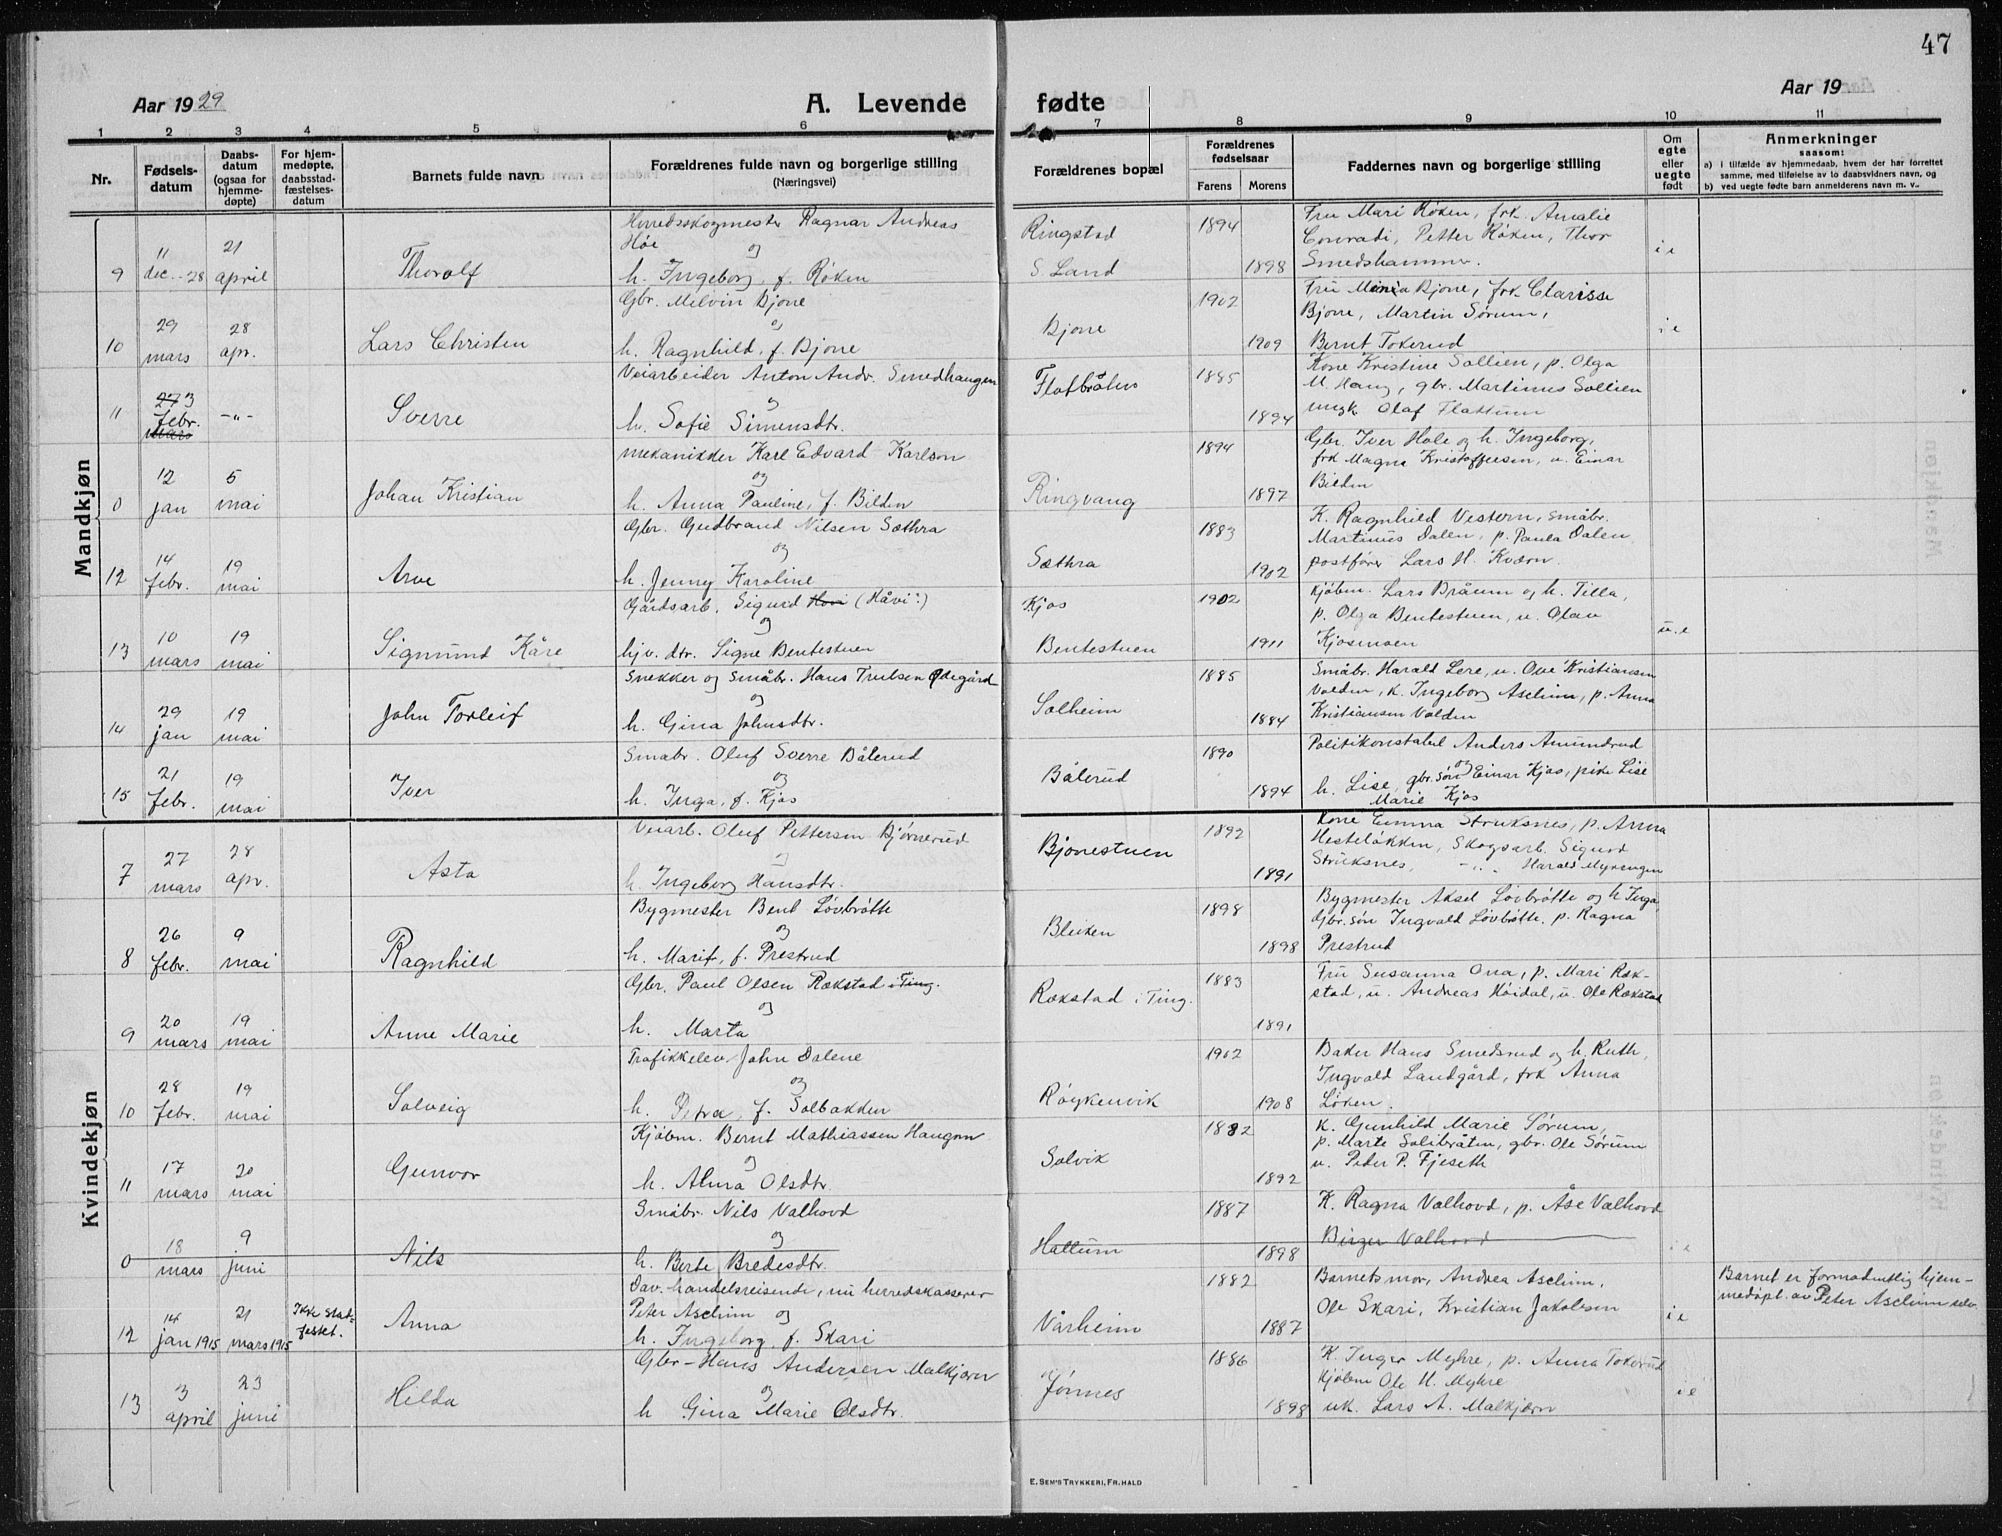 47
Aar 1929
A. Levende fødte
Aar 19
1 2 3 4 5 6 7 8 9 10 11
Nr.
Fødsels-
datum
Daabs-
datum
(ogsaa for
hjemme-
døpte)
For hjem-
medøpte,
daabsstad-
fæstelses-
datum
Barnets fulde navn
Forældrenes fulde navn og borgerlige stilling
(Næringsvei)
Forældrenes bopæl
Forældrenes
fødselsaar
Farens Morens
Faddernes navn og borgerlige stilling
Om
egte
eller
uegte
født
Anmerkninger
saasom:
a) i tilfælde av hjemmedaab, hvem der har forrettet
samme, med tilføielse av to daabsvidners navn, og
b) ved uegte fødte barn anmelderens navn m. v..
Mandkjøn
9 11 dec. -28 21 april Thorolf
Herredsskogmester Ragnar Andreas
Høe og
h. Ingeborg, f. Røken
Ringstad
S. Land
1894 1898
Fru Mari Røken, frk. Amalie
Conradi, Petter Røken, Thor
Smedshammer.
i e
10 29 mars 28 apr. Lars Christen
Gbr. Melvin Bjone
og
h. Ragnhild, f. Bjone
Bjone
1902 1909
Fru Minia Bjone, frk Clarisse
Bjone, Martin Sørum,
Bernt Tokerud
i e
11 27 3 febr. mars -"- Sverre
Veiarbeider Anton Andr. Smedhaugen
og
h. Sofie Simensdtr.
Flatbråten
1885 1894
Kone Kristine Sollien, p. Olga
M. Haug, gbr. Martinus Sollien
ungk. Olaf Flattum
0 12 jan 5 mai Johan Kristian
mekanikker Karl Edvard Karlson
og
h. Anna Pauline, f. Bilden
Ringvang
1894 1897
Gbr. Iver Hole og h. Ingeborg,
frk Magna Kristoffersen, u. Einar
Bilden
12 14 febr. 19 mai Arve
Gbr. Gudbrand Nilsen Sæthra
og
h. Jenny Karoline
Sæthra
1883 1902
K. Ragnhild Vestern, småbr.
Martinus Dalen, p. Paula Dalen
postfører Lars H. Kværn.
13 10 mars 19 mai Sigmund Kåre
Gårdsarb. Sigurd Hovi (Håvi:)
og
hjv. dtr. Signe Bentestuen
Kjos
Bentestuen
1902 1911
Kjøbm. Lars Bråum og h. Tilla,
p. Olga Bentestuen, u. Olav
Kjosmoen
u. e
14 29 jan 19 mai John Torleif
Snekker og Småbr. Hans Trulsen Ødegård
og
h. Gina Johnsdtr.
Solheim
1885 1884
Småbr. Harald Lere, u. Ove Kristiansen
Volden, k. Ingeborg Aschim, p. Anna
Kristiansen Volden
15 21 febr. 19 mai Iver
Småbr. Oluf Sverre Bålerud
og
h. Inga, f. Kjos
Bålerud
1890 1894
Politikonstabel Anders Amundrud
og
h. Lise, gbr. søn Einar Kjos, pike Lise
Marie Kjos
Kvindekjøn
7 27 mars 28 apr. Asta
Veiarb. Oluf Pettersen Bjørnerud
og
h. Ingeborg Hansdtr.
Bjonestuen
1892 1891
Kone Emma Struksnes, p. Anna
Hesteløkken, Skogsarb. Sigurd
Struksnes, -"- Harald Myrengen
8 26 febr. 9 mai Ragnhild
Bygmester Bent Løvbrøtte
og
h. Marit, f. Prestrud
Bleiken
1898 1898
Bygmester Aksel Løvbrøtte og h Inga,
Gbr. søn Ingvald Løvbrøtte. p. Ragna
Prestrud
9 20 mars 19 mai Anne Marie
Gbr. Paul Olsen Rækstad i Ting.
og
h. Marta
Rækstad i Ting.
1883 1891
Fru Susanna Ona, p. Mari Ræk-
stad, u. Andreas Høidal, u. Ole Rækstad
10 28 febr. 19 mai Solveig
Trafikkelev John Dalene
og
h. Petra, f. Solbakken
Røykenvik
1902 1908
Baker Hans Smedsrud og h. Ruth,
Ingvald Landgård, frk Anna
Løken.
11 17 mars 20 mai Gunvor
Kjøbm. Bernt Mathiassen Haugen
og
h. Alma Olsdtr.
Solvik
1882 1892
K. Gunhild Marie Sørum,
p. Marte Solibråten, gbr. Ole Sørum
u. Peter P. Fjeseth
0 18 mars 9 juni Nils
Småbr. Nils Valhovd
og
h. Berte Bredesdtr.
Hallum
1887 1898
K. Ragna Valhovd, p. Åse Valhovd
Birger Valhovd
i e
12 14 jan 1915 21 mars 1915 Ikke stad-
festet. Anna
Dav. handelsreisende, nu herredskasserer
Peter Aschim og
h. Ingeborg, f. Skari
Vårheim
1882 1887
Barnets mor, Andrea Aschim,
Ole Skari, Kristian Jakobsen
i e
Barnet er formodentlig hjem-
medøpt av Peter Aschim selv
13 3 april 23 juni Hilda
Gbr- Hans Andersen Malkjærn
og
h Gina Marie Olsdtr.
Jønnes
1886 1898
K. Inger Myhre, p. Anna Tokerud
Kjøbm Ole M. Myhre
uk. Lars A. Malkjærn
i e
E. SEM'S TRYKKERI, FR.HALD